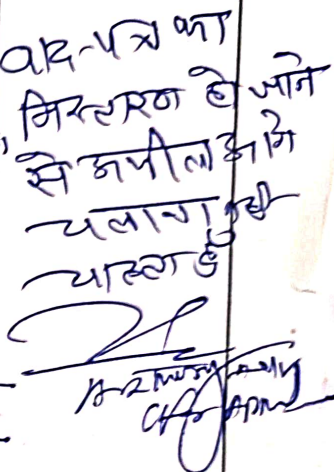 वाद-पत्र का
निस्तारण हो जाने
से अपील आगे
चलाना नहीं
चाहता हूँ